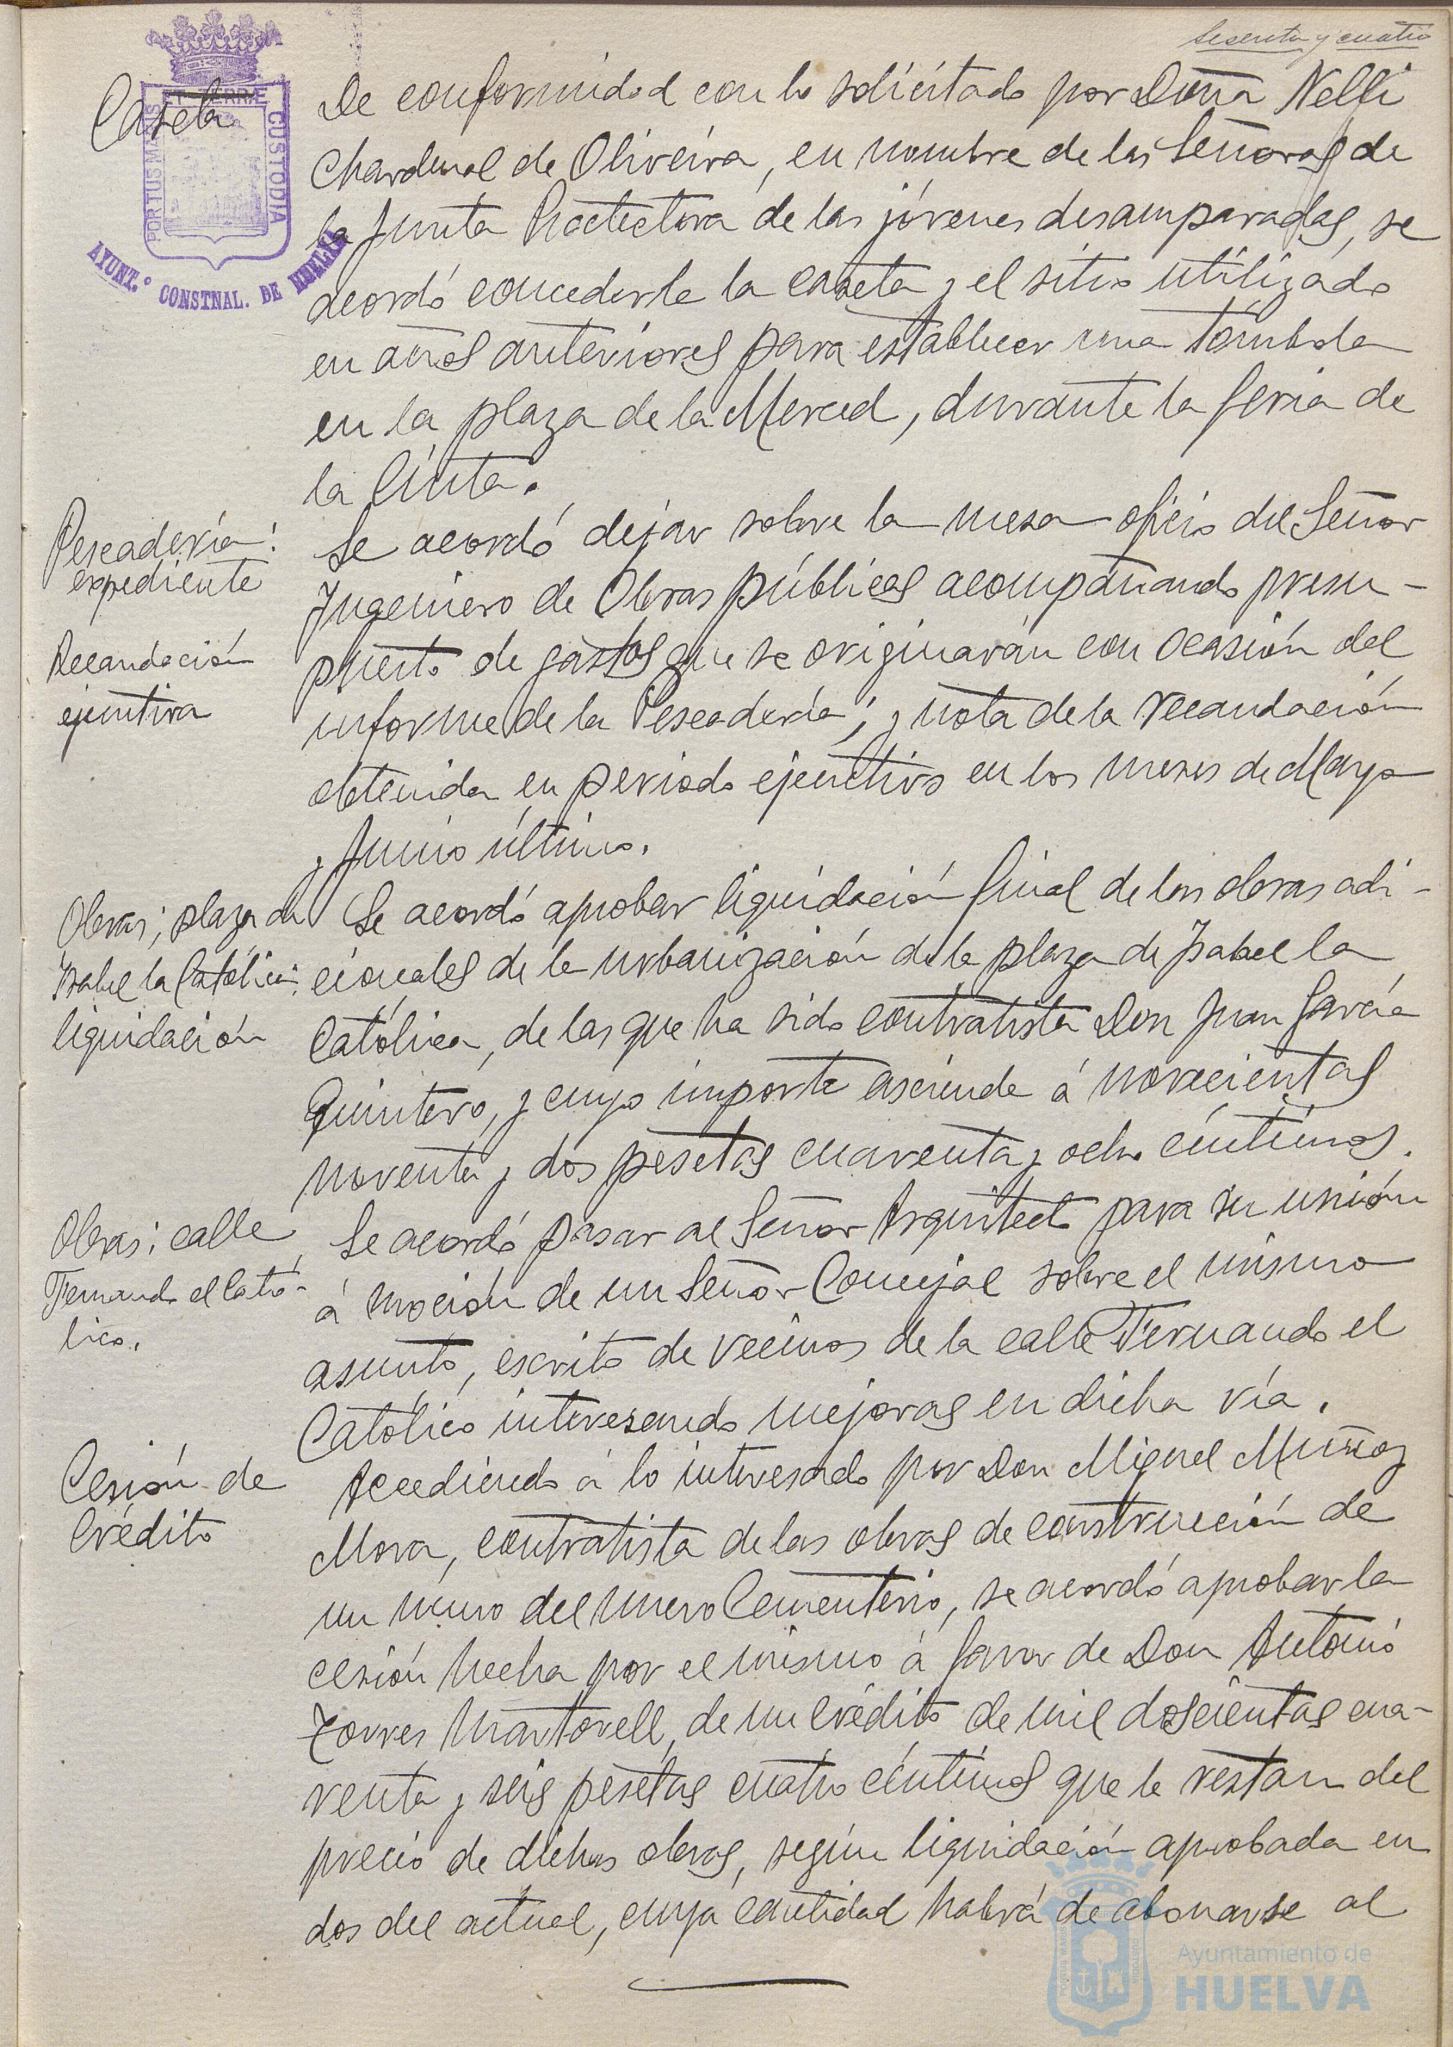 Sesenta y cuatro
Caseta
PORTUS MARIS
ET TERRÆ
CUSTODIA
AYUNT.º CONSTNAL. DE HUELVA
De conformidad con lo solicitado por Doña Nelli
Chardenal de Oliveira, en nombre de las Señoras de
la Junta Protectora de las jóvenes desamparadas, se
acordó concederle la caseta y el sitio utilizado
en años anteriores para establecer una tómbola
en la plaza de la Merced, durante la feria de
la Cinta.
Pescadería:
expediente
Se acordó dejar sobre la mesa oficio del Señor
Ingeniero de Obras públicas acompañando presu-
Recaudación
ejecutiva
puesto de gastos que se originarán con ocasión del
informe de la Pescadería; y nota de la recaudación
obtenida en periodo ejecutivo en los meses de Mayo
y Junio último.
Obras; plaza de
Isabel la Católica:
liquidación
Se acordó aprobar liquidación final de las obras adi-
cionales de la urbanización de la plaza de Isabel la
Católica, de las que ha sido contratista Don Juan García
Quintero, y cuyo importe asciende á novecientas
noventa y dos pesetas cuarenta y ocho céntimos.
Obras; calle
Fernando el Cató-
lico.
Se acordó pasar al Señor Arquitecto para su unión
á moción de un Señor Concejal sobre el mismo
asunto, escrito de vecinos de la calle Fernando el
Católico interesando mejoras en dicha vía.
Cesión de
Crédito
Accediendo á lo interesado por Don Miguel Muñoz
Mora, contratista de las obras de construcción de
un muro del nuevo Cementerio, se acordó aprobar la
cesión hecha por el mismo á favor de Don Antonio
Torres Martorell, de un crédito de mil doscientas cua-
renta y seis pesetas cuatro céntimos que le restan del
precio de dichas obras, según liquidación aprobada en
dos del actual, cuya cantidad habrá de abonarse al
Ayuntamiento de
HUELVA